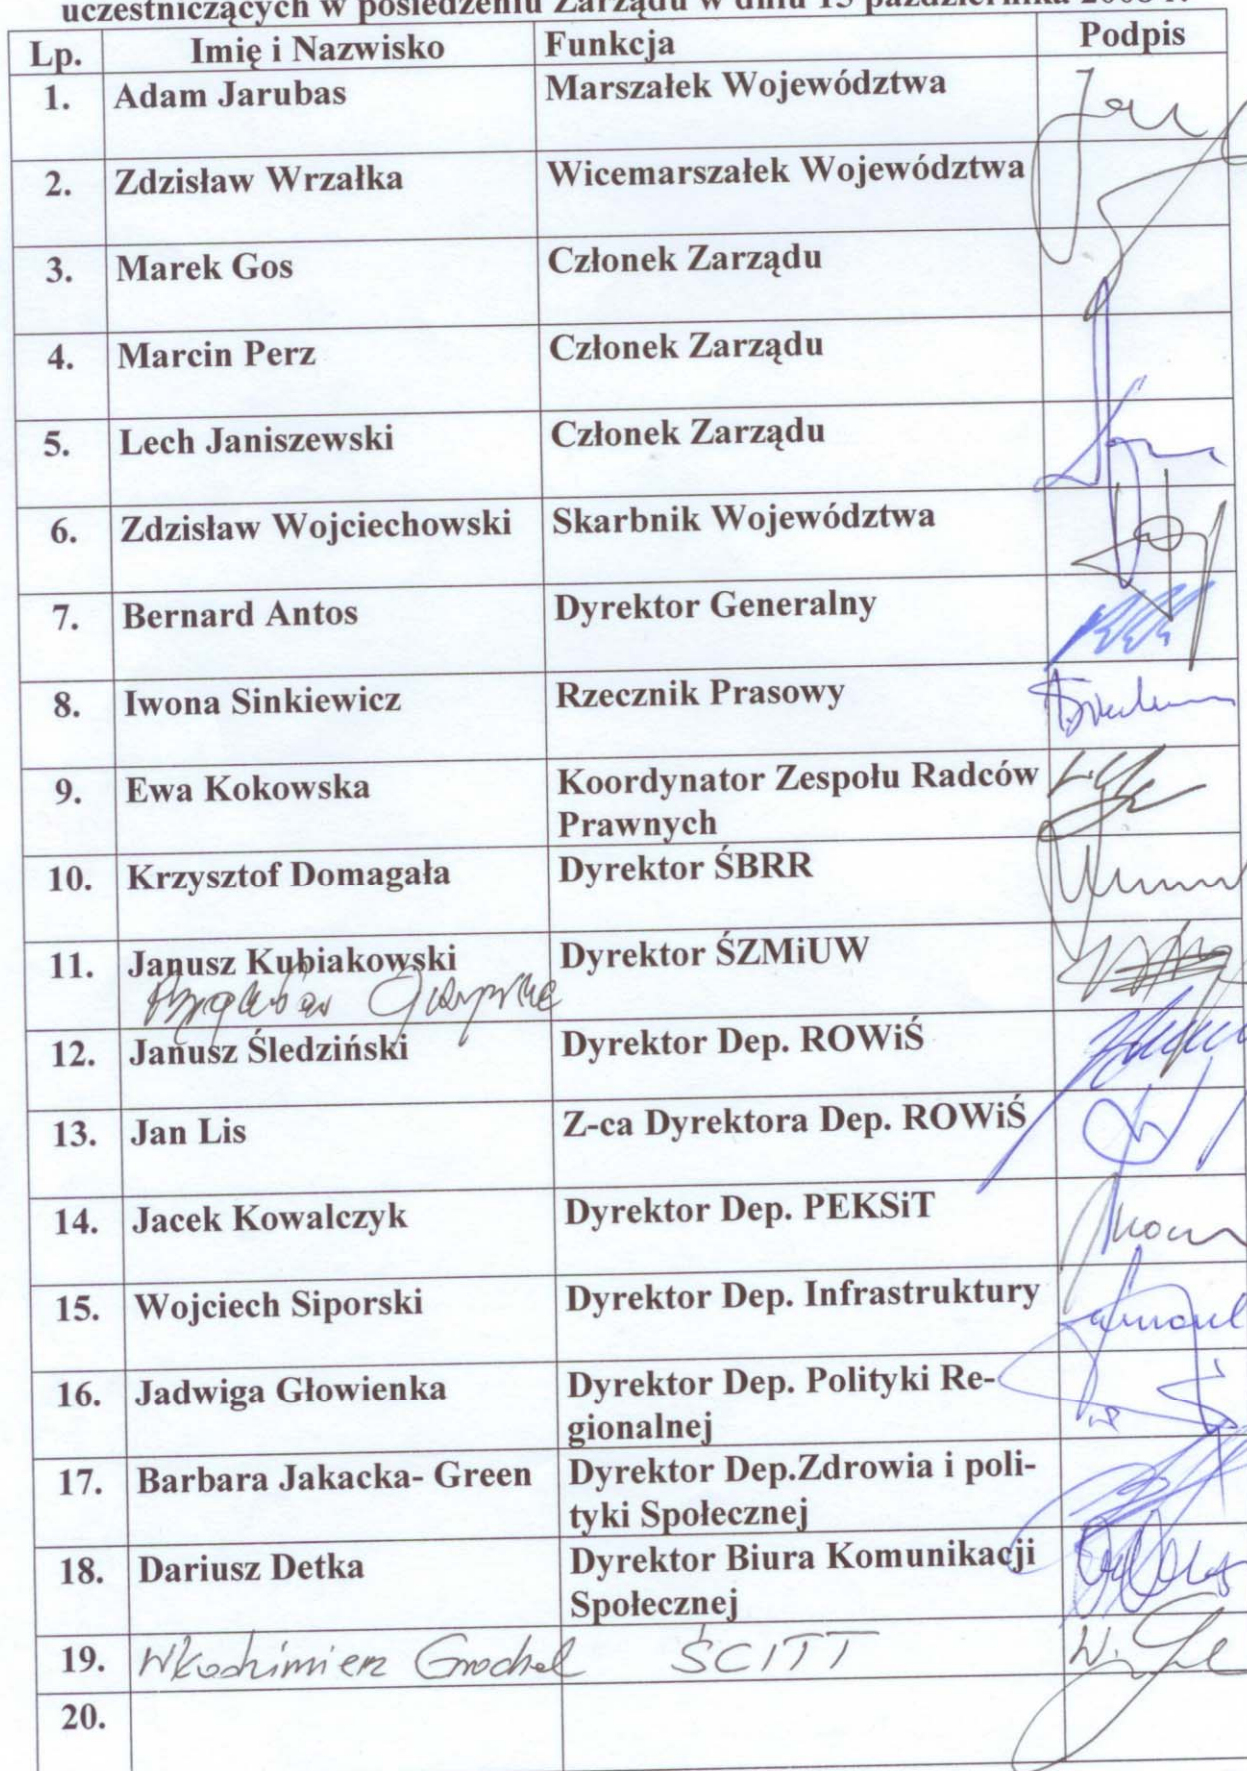 uczestniczących w posiedzeniu Zarządu w dniu 15 października 2008 r.
Lp. Imię i Nazwisko Funkcja Podpis
1. Adam Jarubas Marszałek Województwa
2. Zdzisław Wrzałka Wicemarszałek Województwa
3. Marek Gos Członek Zarządu
4. Marcin Perz Członek Zarządu
5. Lech Janiszewski Członek Zarządu
6. Zdzisław Wojciechowski Skarbnik Województwa
7. Bernard Antos Dyrektor Generalny
8. Iwona Sinkiewicz Rzecznik Prasowy
9. Ewa Kokowska Koordynator Zespołu Radców
Prawnych
10. Krzysztof Domagała Dyrektor ŚBRR
11. Janusz Kubiakowski Dyrektor ŚZMiUW
12. Janusz Śledziński Dyrektor Dep. ROWiŚ
13. Jan Lis Z-ca Dyrektora Dep. ROWiŚ
14. Jacek Kowalczyk Dyrektor Dep. PEKSiT
15. Wojciech Siporski Dyrektor Dep. Infrastruktury
16. Jadwiga Głowienka Dyrektor Dep. Polityki Re-
gionalnej
17. Barbara Jakacka- Green Dyrektor Dep.Zdrowia i poli-
tyki Społecznej
18. Dariusz Detka Dyrektor Biura Komunikacji
Społecznej
19. ŚCITT
20.